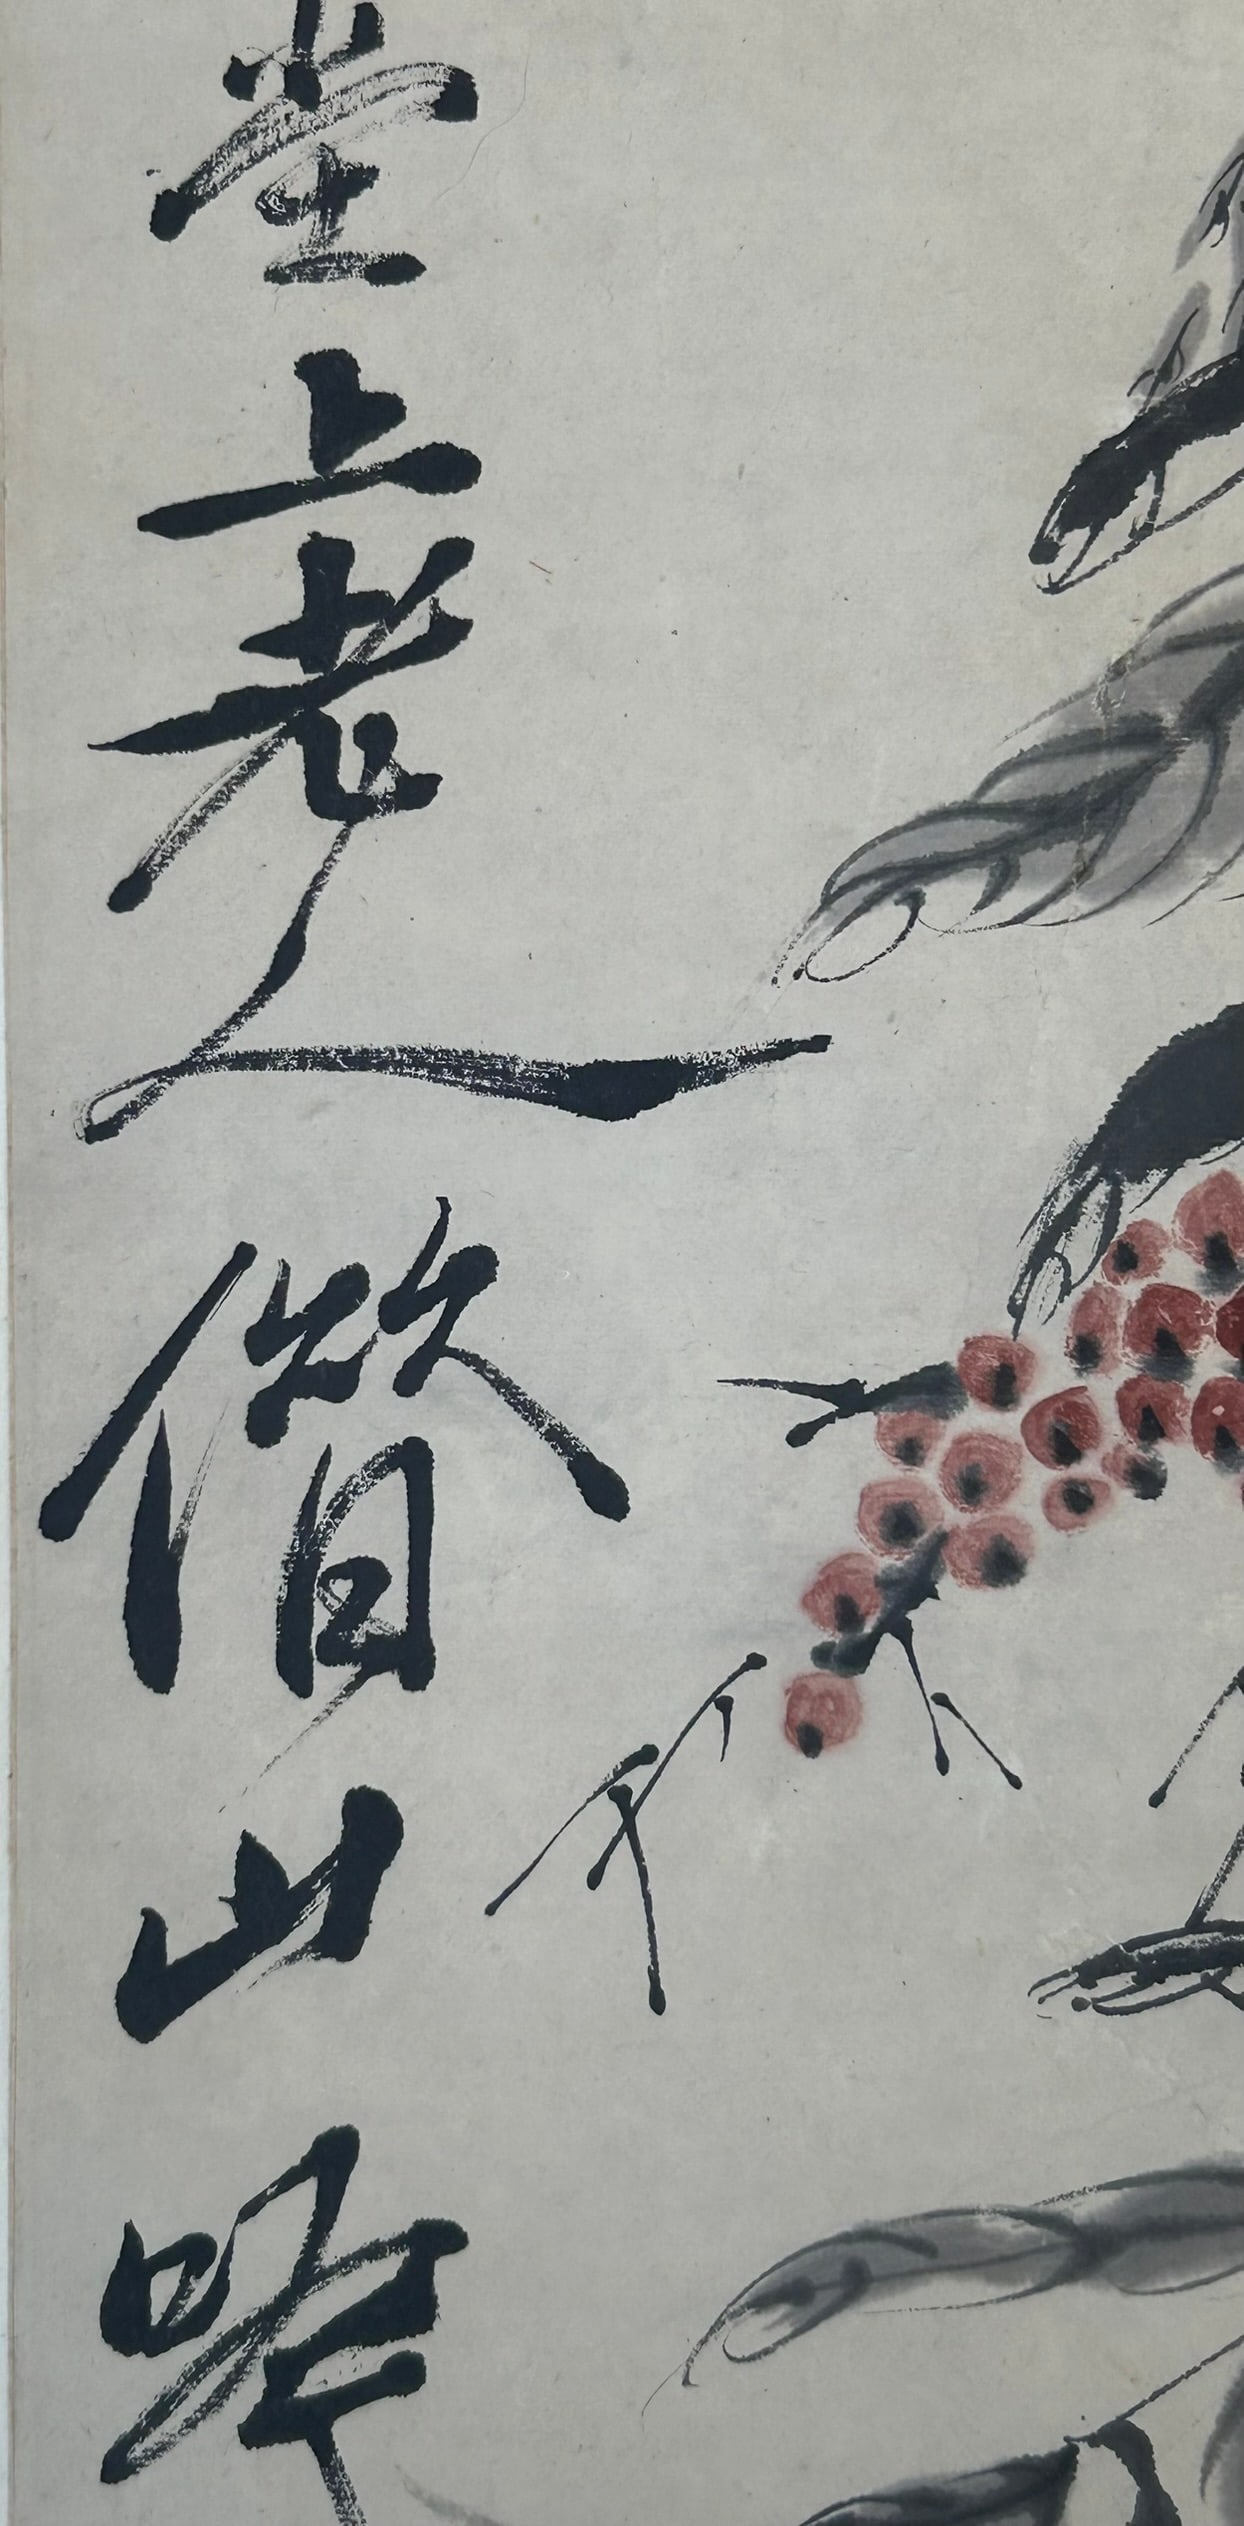 堂上老人借山吟